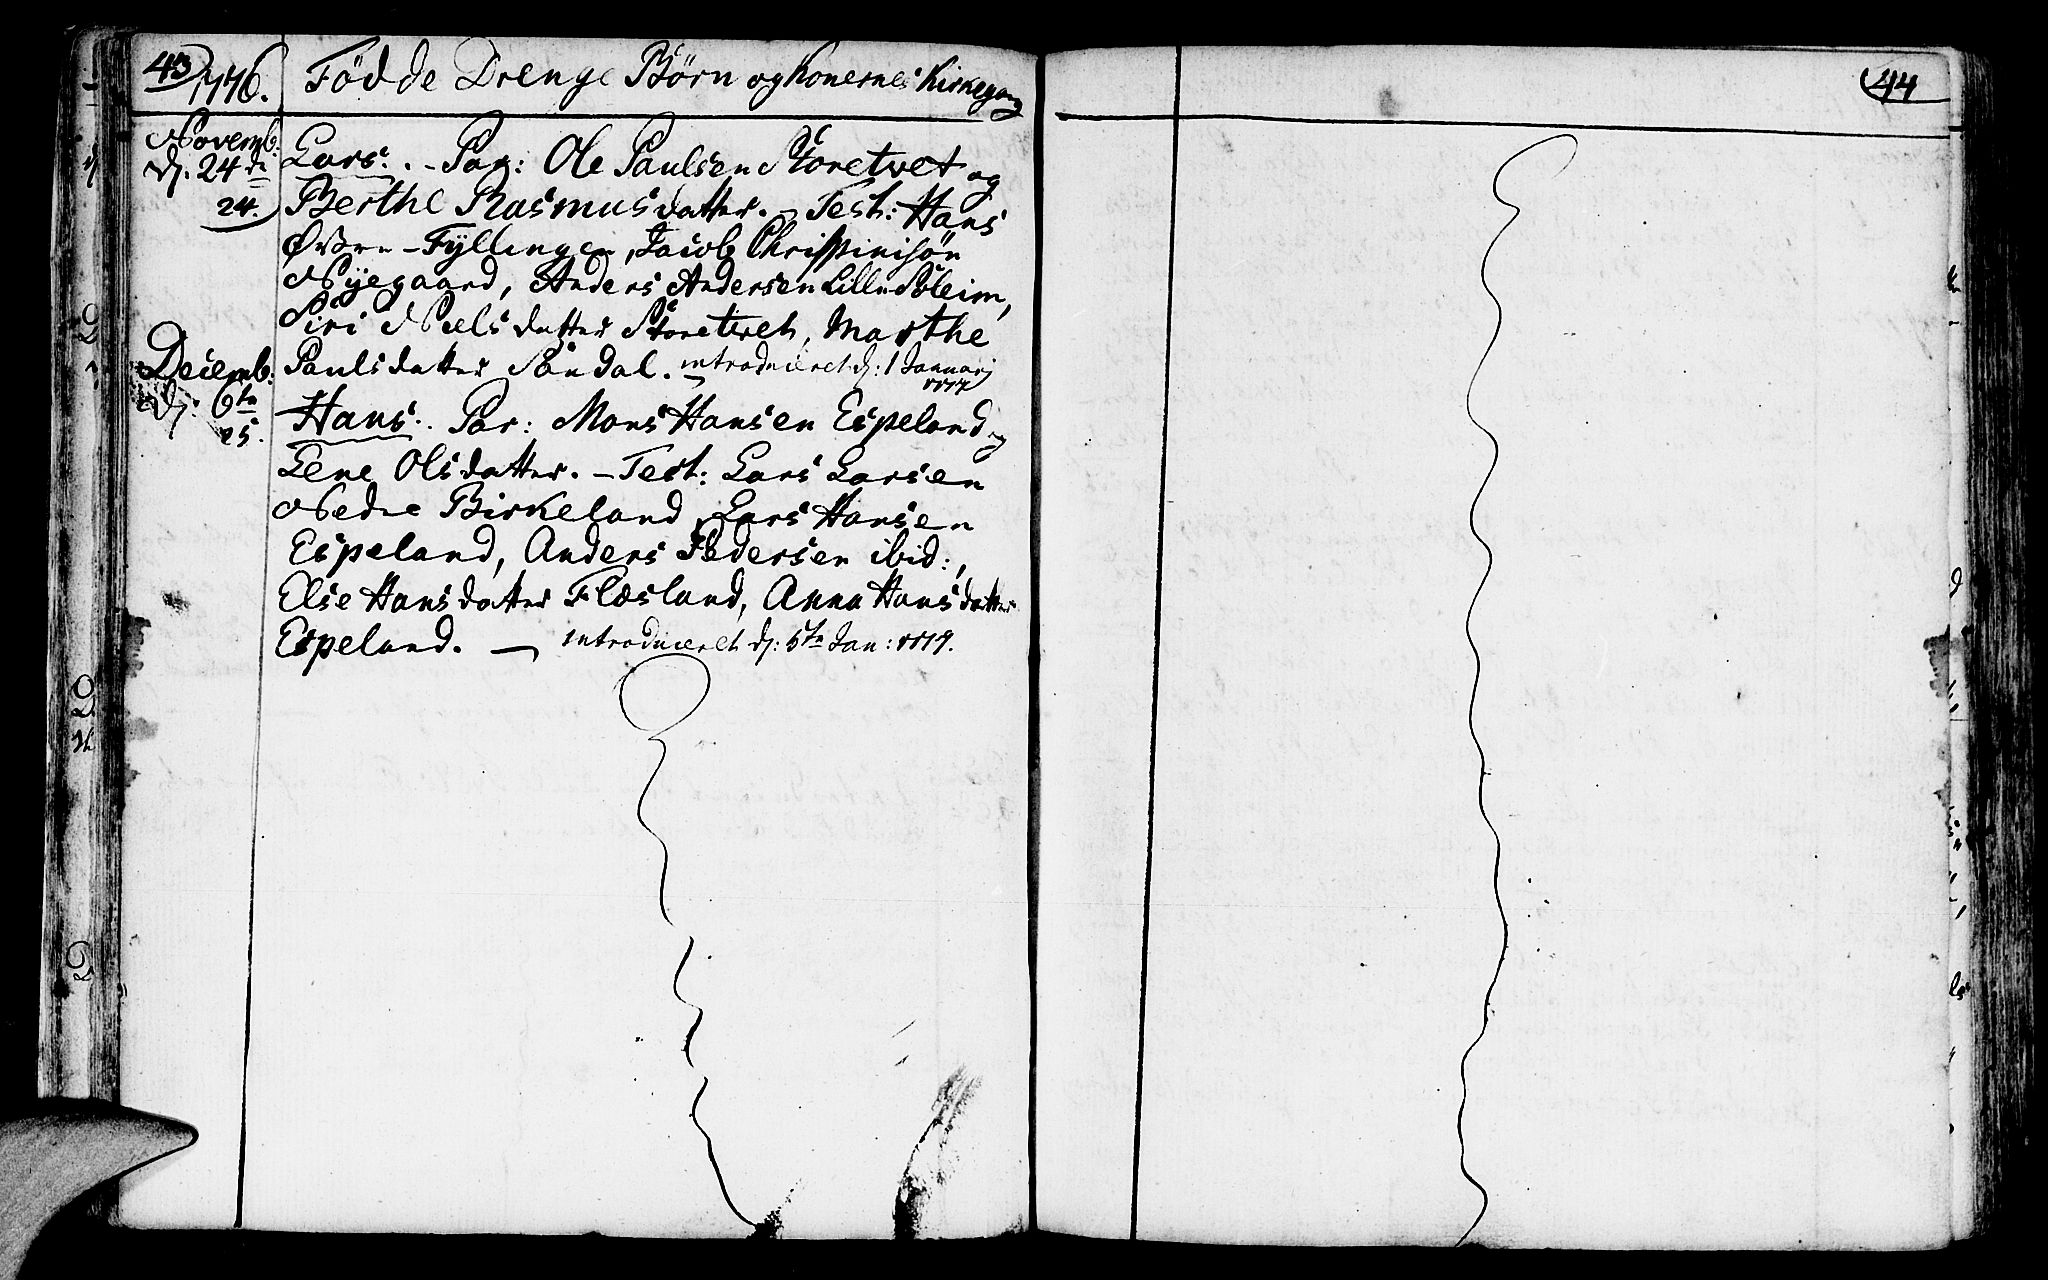 43 1776. Födde Drenge Børn og Konernes Kirkegang
Novemb:
Dj. 24de
24.
Lars. - Par: Ole Paulsen Storetvet og
Berthe Rasmusdatter. - Test: Hans
Øvre-Fÿllingen, Jacob
Nÿegaard, Anders Andersen Lille
Siri Nielsdatter Storetvet, Marthe
Paulsdatter Søndal. introduceret dj: 1 Januarj
1777
Decemb:
Dj. 6te
25.
Hans. Par: Mons Hansen Espeland og
Lene Olsdatter. - Test: Lars Larsen
Nedre Birkeland, Lars Hansen
Espeland, Anders Pedersen ibid:,
Else Hansdatter Flæsland, Anna Hansdatter
Espeland. - introduceret dj: 6te Jan: 1777.
44